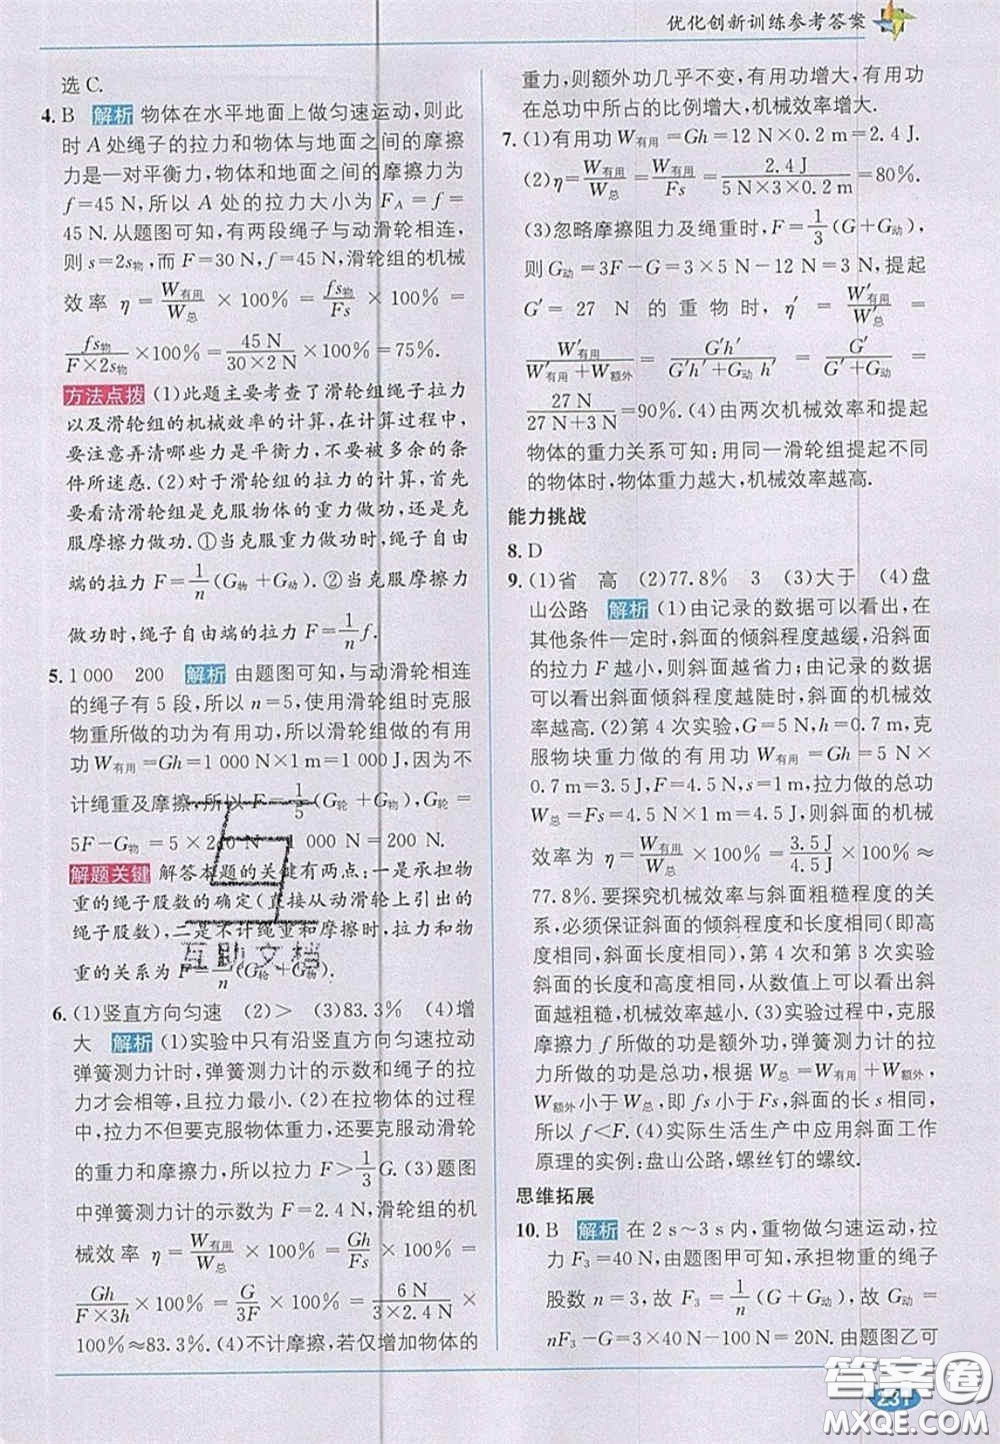 优化创新训练参考答案
选C.
4. B 解析 物体在水平地面上做匀速运动,则此
时A处绳子的拉力和物体与地面之间的摩擦
力是一对平衡力,物体和地面之间的摩擦力为
f=45 N,所以A处的拉力大小为F_A=f=
45 N.从题图可知,有两段绳子与动滑轮相连,
则s=2s物,而F=30 N,f=45 N,滑轮组的机械
效率η=W有用/W总×100%=fs物/Fs×100%=
fs物/(F×2s物)×100%=45 N/(30×2 N)×100%=75%.
方法点拨 (1)此题主要考查了滑轮组绳子拉力
以及滑轮组的机械效率的计算,在计算过程中,
要注意弄清哪些力是有用的,不要被多余的条
件所迷惑.(2)对于滑轮组的拉力的计算,首先
要看清滑轮组是克服物体的重力做功,还是克
服摩擦力做功.①当克服重力做功时,绳子自由
端的拉力F=1/n(G物+G动).②当克服摩擦力
做功时,绳子自由端的拉力F=1/n f.
5. 1 000 200 解析 由题图可知,与动滑轮相连
的绳子有5段,所以n=5,使用滑轮组时克服
物重所做的功为有用功,所以滑轮组做的有用
功W有用=Gh=1 000 N×1 m=1 000 J,因为不
计绳重及摩擦,所以F=1/5(G轮+G物),G轮=
5F-G物=5×240 N-1 000 N=200 N.
解题关键 解答本题的关键有两点:一是承担物
重的绳子股数的确定(直接从动滑轮上引出的
绳子股数),二是不计绳重和摩擦时,拉力和物
重的关系为F=1/n(G轮+G物).
6. (1)竖直方向匀速 (2)> (3)83.3% (4)增
大 解析 (1)实验中只有沿竖直方向匀速拉动
弹簧测力计时,弹簧测力计的示数和绳子的拉
力才会相等,且拉力最小.(2)在拉物体的过程
中,拉力不但要克服物体重力,还要克服动滑轮
的重力和摩擦力,所以拉力F>1/3 G.(3)题图
中弹簧测力计的示数为F=2.4 N,滑轮组的机
械效率η=W有用/W总×100%=Gh/Fs×100%=
Gh/(F×3h)×100%=G/3F×100%=6 N/(3×2.4 N)×
100%≈83.3%.(4)不计摩擦,若仅增加物体的
重力,则额外功几乎不变,有用功增大,有用功
在总功中所占的比例增大,机械效率增大.
7. (1)有用功W有用=Gh=12 N×0.2 m=2.4 J.
(2)η=W有用/W总=W有用/Fs=2.4 J/(5 N×3×0.2 m)=80%.
(3)忽略摩擦阻力及绳重时,F=1/3(G+G动),
则G动=3F-G=3×5 N-12 N=3 N,提起
G′=27 N的重物时,η′=W′有用/W′总=
W′有用/(W′有用+W额外)=G′h′/(G′h′+G动 h′)=G′/(G′+G动)=
27 N/(27 N+3 N)=90%.(4)由两次机械效率和提起
物体的重力关系可知:用同一滑轮组提起不同
的物体时,物体重力越大,机械效率越高.
能力挑战
8. D
9. (1)省 高 (2)77.8% 3 (3)大于 (4)盘
山公路 解析 (1)由记录的数据可以看出,在
其他条件一定时,斜面的倾斜程度越缓,沿斜面
的拉力F越小,则斜面越省力;由记录的数据
可以看出斜面倾斜程度越陡时,斜面的机械效
率越高.(2)第4次实验,G=5 N,h=0.7 m,克
服物块重力做的有用功W有用=Gh=5 N×
0.7 m=3.5 J,F=4.5 N,s=1 m,拉力做的总功
W总=Fs=4.5 N×1 m=4.5 J,则斜面的机械
效率为η=W有用/W总×100%=3.5 J/4.5 J×100%≈
77.8%.要探究机械效率与斜面粗糙程度的关
系,必须保证斜面的倾斜程度和长度相同(即高
度相同,斜面长度相同),第4次和第3次实验
斜面的高度和长度相同.(3)实验过程中,克服
摩擦力f所做的功是额外功,斜面的拉力F所
做的功是总功,根据W总=W有用+W额外,
W额外小于W总,即fs小于Fs,斜面长s相同,
所以f<F.(4)实际生活生产中应用斜面工作
原理的实例:盘山公路,螺丝钉的螺纹.
思维拓展
10. B 解析 在2 s~3 s内,重物做匀速运动,拉
力F₃=40 N,由题图甲可知,承担物重的绳子
股数n=3,故F₃=1/n(G+G动),故G动=
nF₃-G=3×40 N-100 N=20N.由题图乙可
互助文档
231
答案圈
MXQE.COM